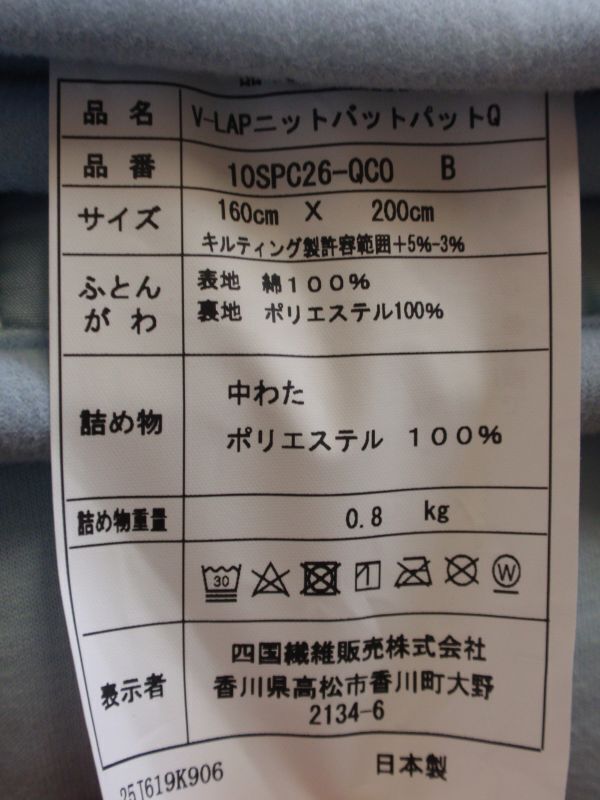 品名 V-LAPニットパットパットQ
品番 10SPC26-QC0 B
サイズ 160cm X 200cm
キルティング製許容範囲+5%-3%
ふとんがわ 表地 綿100%
裏地 ポリエステル100%
詰め物 中わた
ポリエステル 100%
詰め物重量 0.8 kg
30 W
表示者 四国繊維販売株式会社
香川県高松市香川町大野
2134-6
25J619K906 日本製